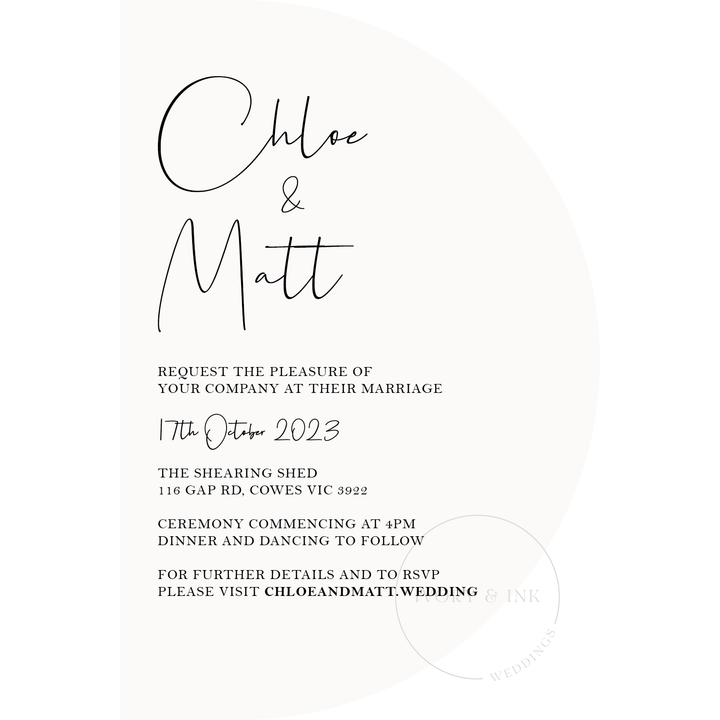 Chloe
&
Matt
REQUEST THE PLEASURE OF
YOUR COMPANY AT THEIR MARRIAGE
17th October 2023
THE SHEARING SHED
116 GAP RD, COWES VIC 3922
CEREMONY COMMENCING AT 4PM
DINNER AND DANCING TO FOLLOW
FOR FURTHER DETAILS AND TO RSVP
PLEASE VISIT CHLOEANDMATT.WEDDING
IVORY & INK
WEDDINGS